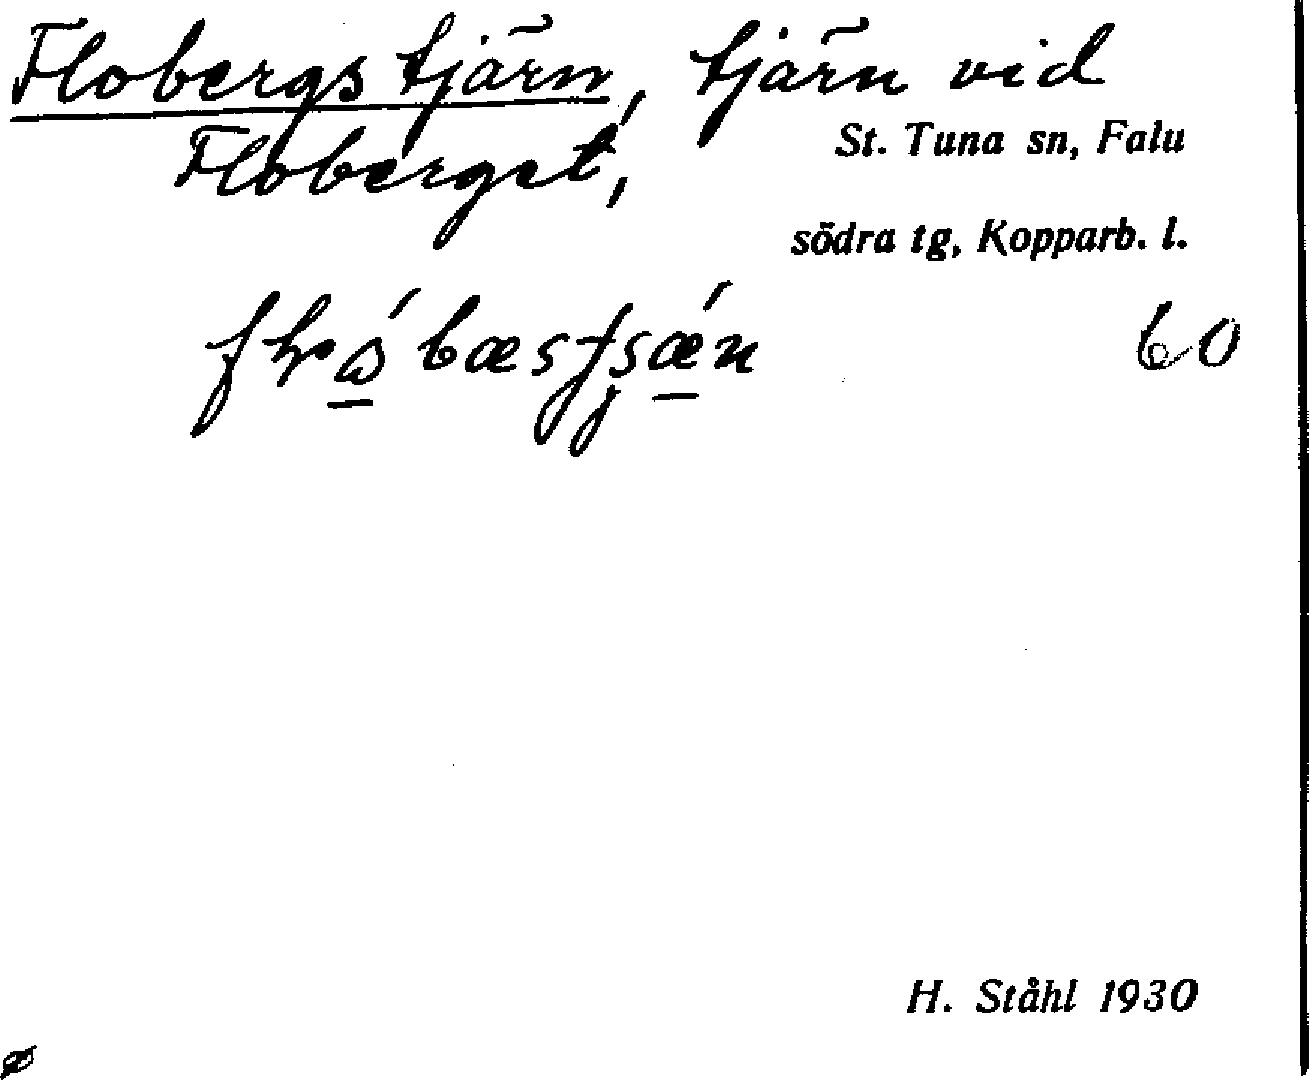 Flobergstjärn, tjärn vid
Floberget,
St. Tuna sn, Falu
södra tg, Kopparb. l.
60
H. Ståhl 1930